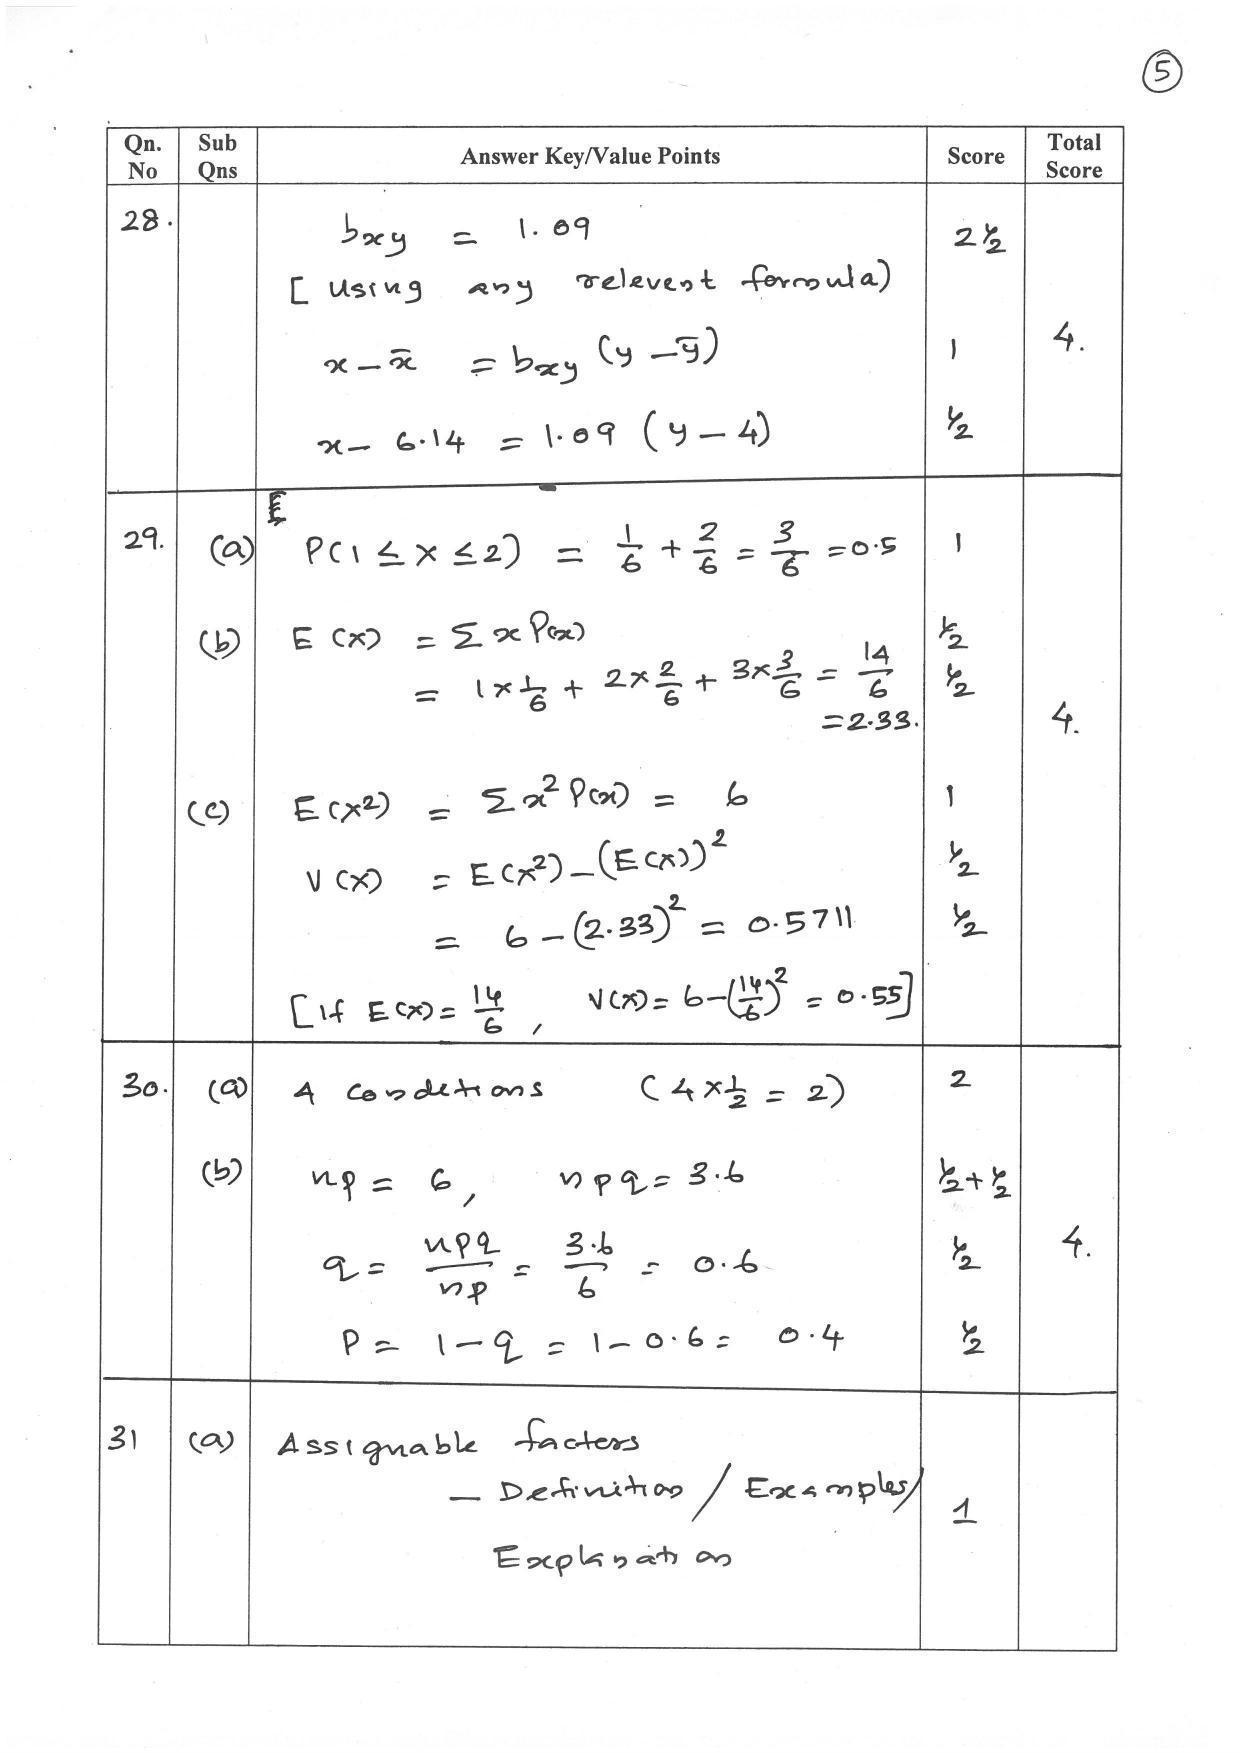 5
Qn. No | Sub Qns | Answer Key/Value Points | Score | Total Score
28. | bxy = 1.09 | 2 ½
[ Using any relevent formula)
x – x̄ = bxy (y – ȳ) | 1 | 4.
x – 6.14 = 1.09 (y – 4) | ½
29. (a) P(1 ≤ X ≤ 2) = 1/6 + 2/6 = 3/6 = 0.5 | 1
(b) E (X) = Σ x P(x) | ½
= 1×1/6 + 2×2/6 + 3×3/6 = 14/6 | ½
= 2.33. | 4.
(c) E(X²) = Σ x² P(x) = 6 | 1
V(X) = E(X²) – (E(X))² | ½
= 6 – (2.33)² = 0.5711 | ½
[If E(X) = 14/6 , V(X) = 6–(14/6)² = 0.55]
30. (a) 4 Condetions (4×½ = 2) | 2
(b) np = 6, npq = 3.6 | ½+½
q = npq/np = 3.6/6 = 0.6 | ½ | 4.
P = 1–q = 1–0.6 = 0.4 | ½
31 (a) Assignable factors
– Definition / Examples/ | 1
Explanation